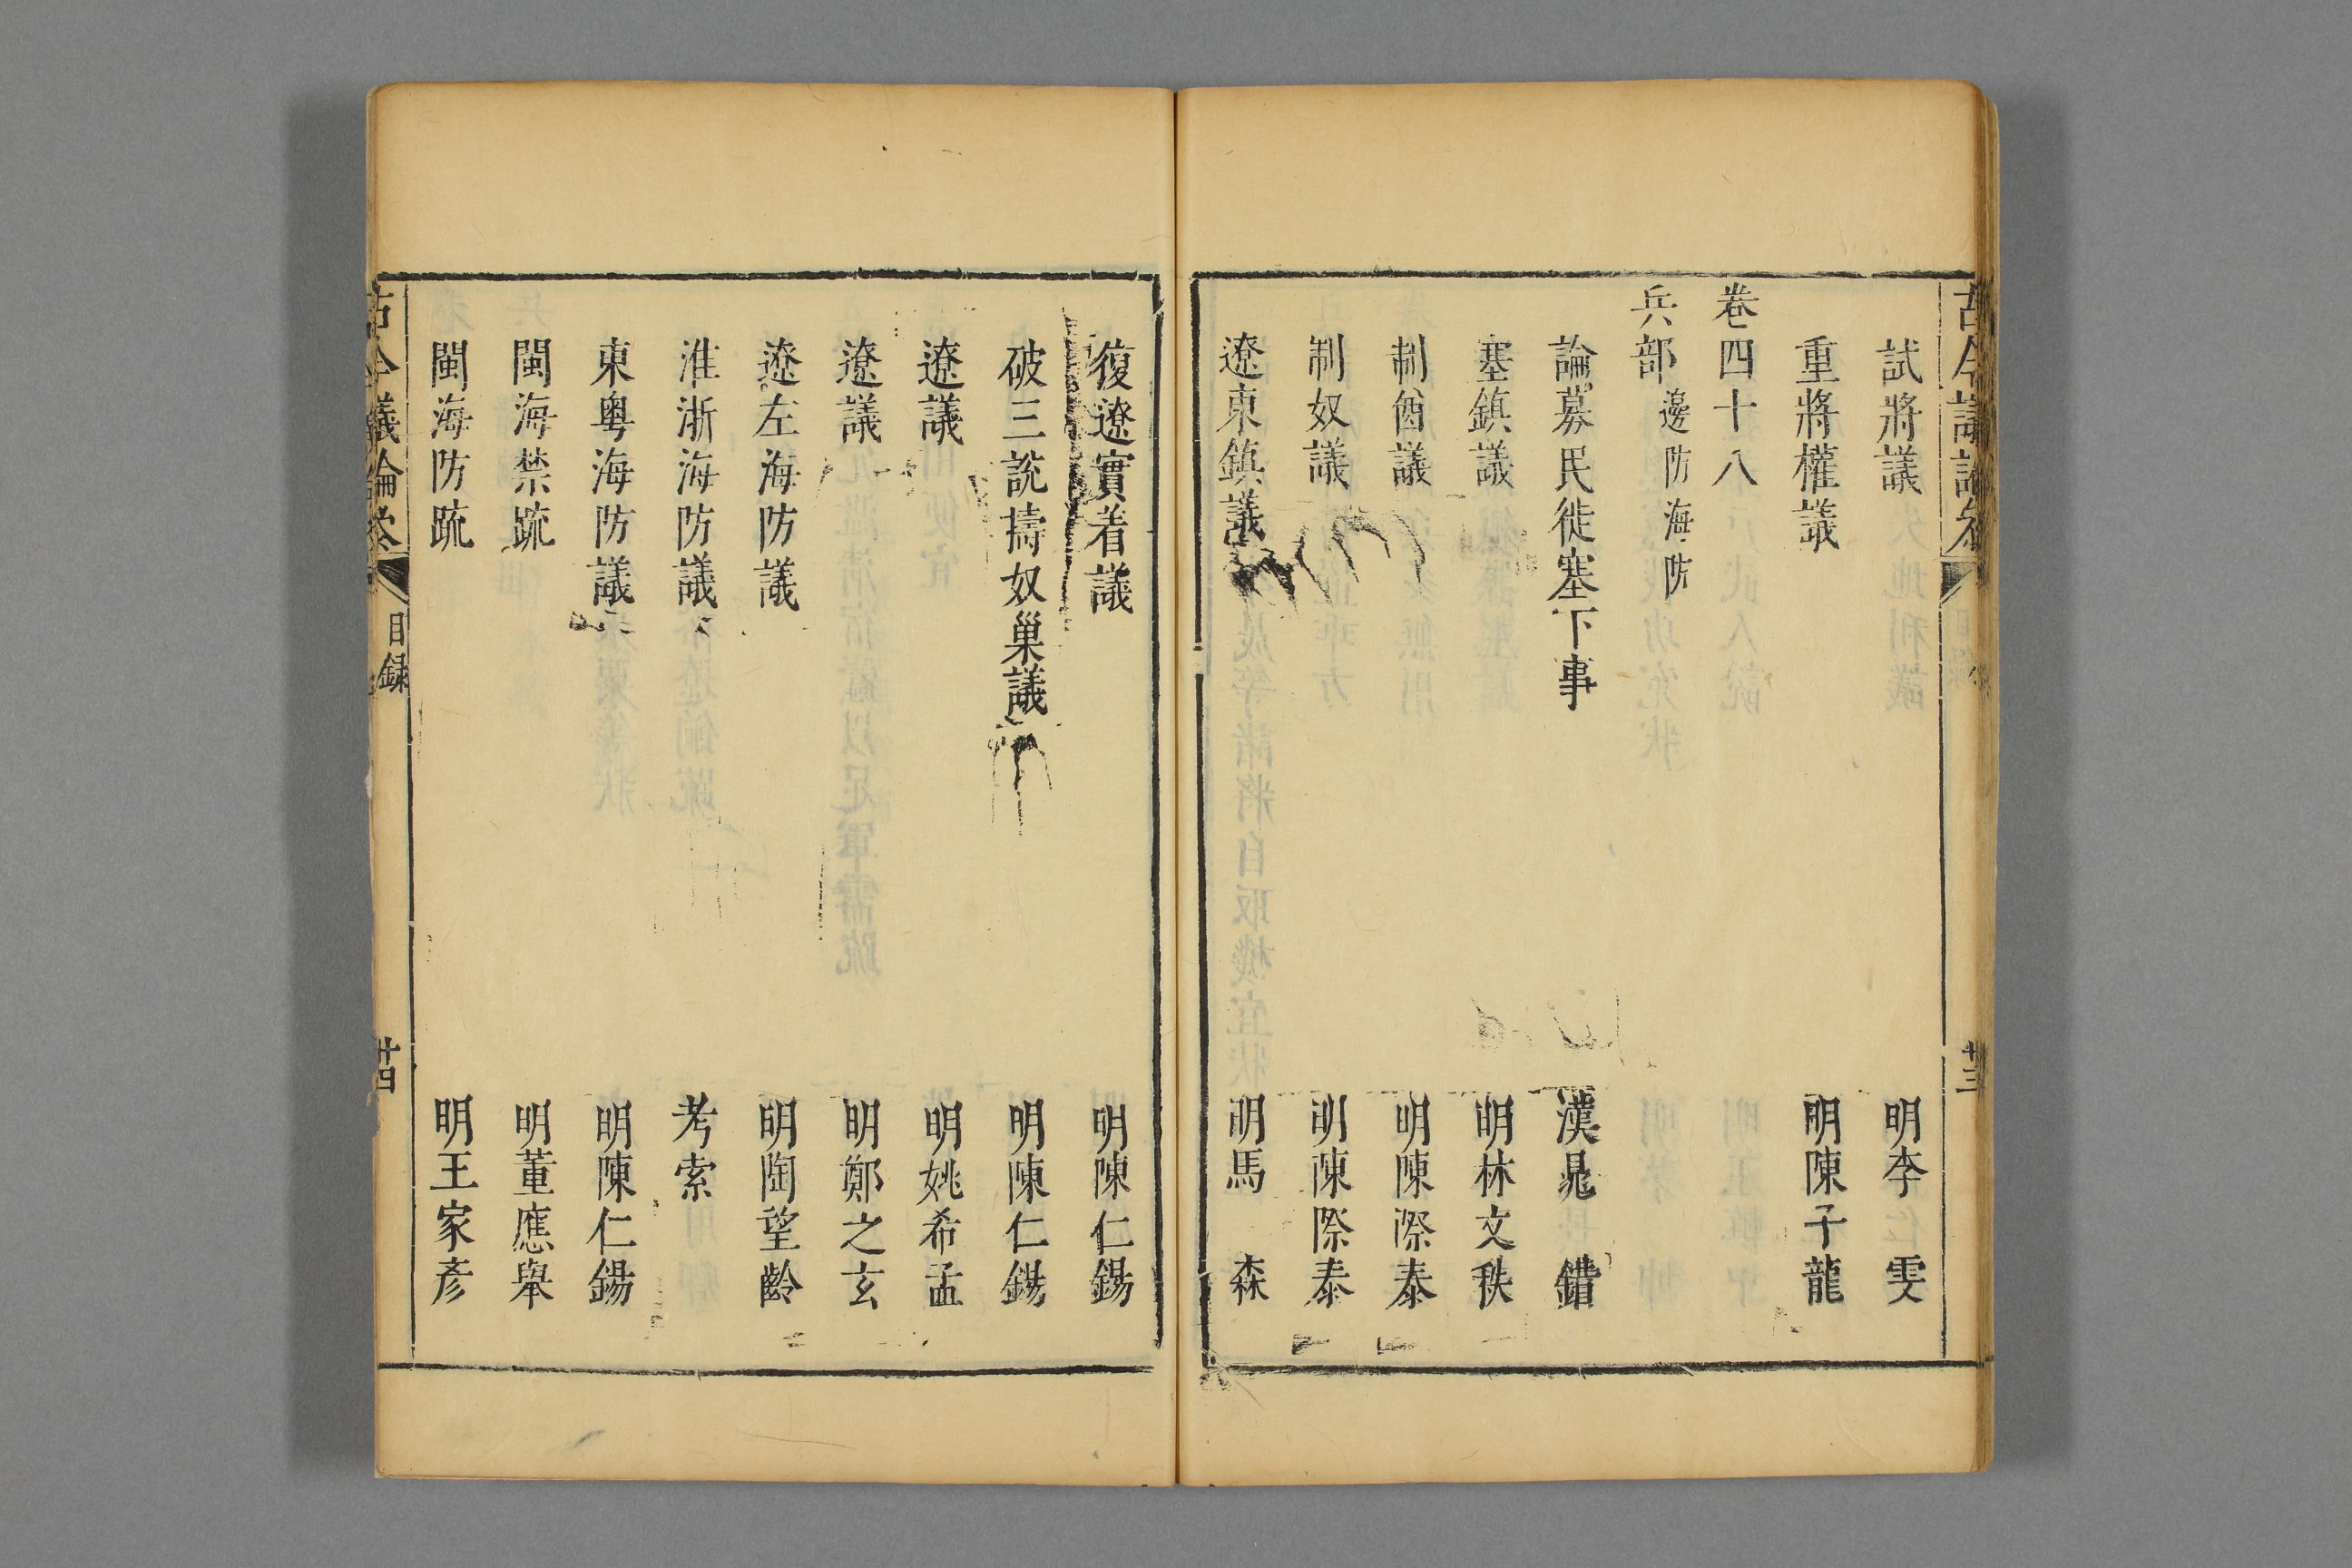 試將議 明李雯
重將權議 明陳子龍
卷四十八
兵部 邊防海防
論募民徙塞下事 漢晁錯
塞鎮議 明林文秩
制酋議 明陳際泰
制奴議 明陳際泰
遼東鎮議 明馬森
復遼實着議 明陳仁錫
破三說擣奴巢議 明陳仁錫
遼議 明姚希孟
遼議 明鄭之玄
遼左海防議 明陶望齡
淮浙海防議 考索
東粵海防議 明陳仁錫
閩海禁疏 明董應舉
閩海防疏 明王家彥
古今議論參 目録 廿四